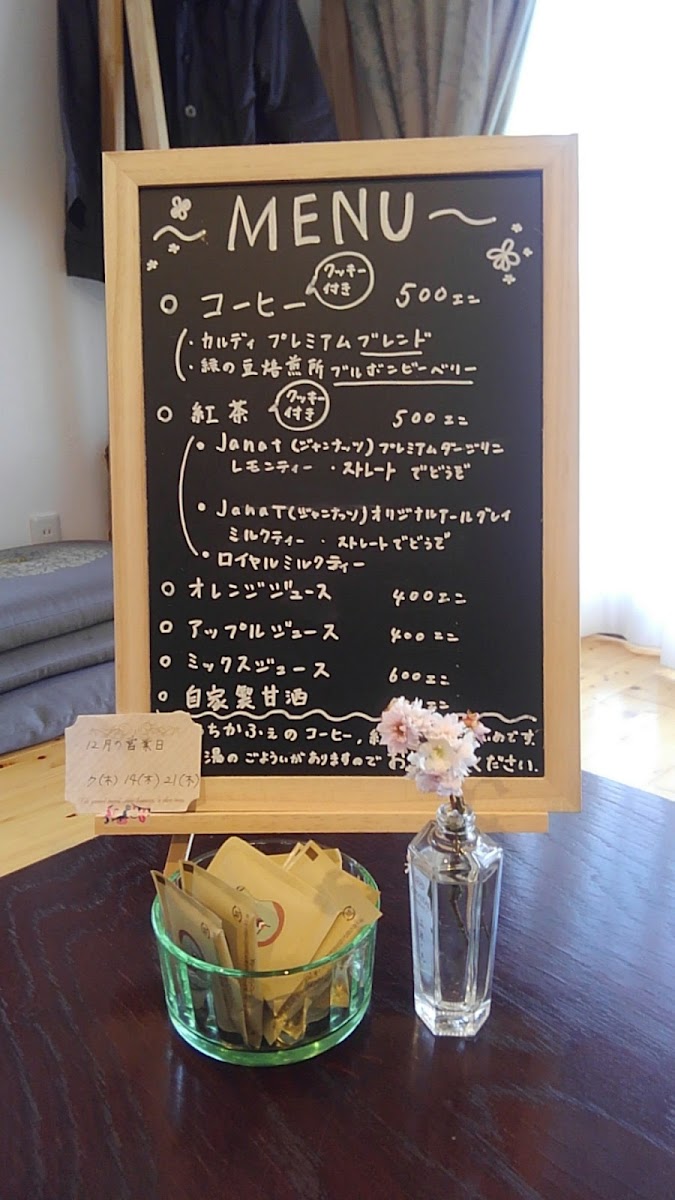 ~MENU~
○ コーヒー クッキー付き 500エン
・カルディ プレミアムブレンド
・緑の豆焙煎所 ブルボンピーベリー
○ 紅茶 クッキー付き 500エン
・Janat (ジャンナッツ) プレミアムダージリン
レモンティー ・ストレート でどうぞ
・JanaT (ジャンナッツ) オリジナルアールグレイ
ミルクティー ・ストレートでどうぞ
・ロイヤルミルクティー
○ オレンジジュース 400エン
○ アップルジュース 400エン
○ ミックスジュース 600エン
○ 自家製甘酒 エン
ちかふぇのコーヒー, めです.
湯の ごよういがありますので ください.
12月の営業日
7(木) 14(木) 21(木)